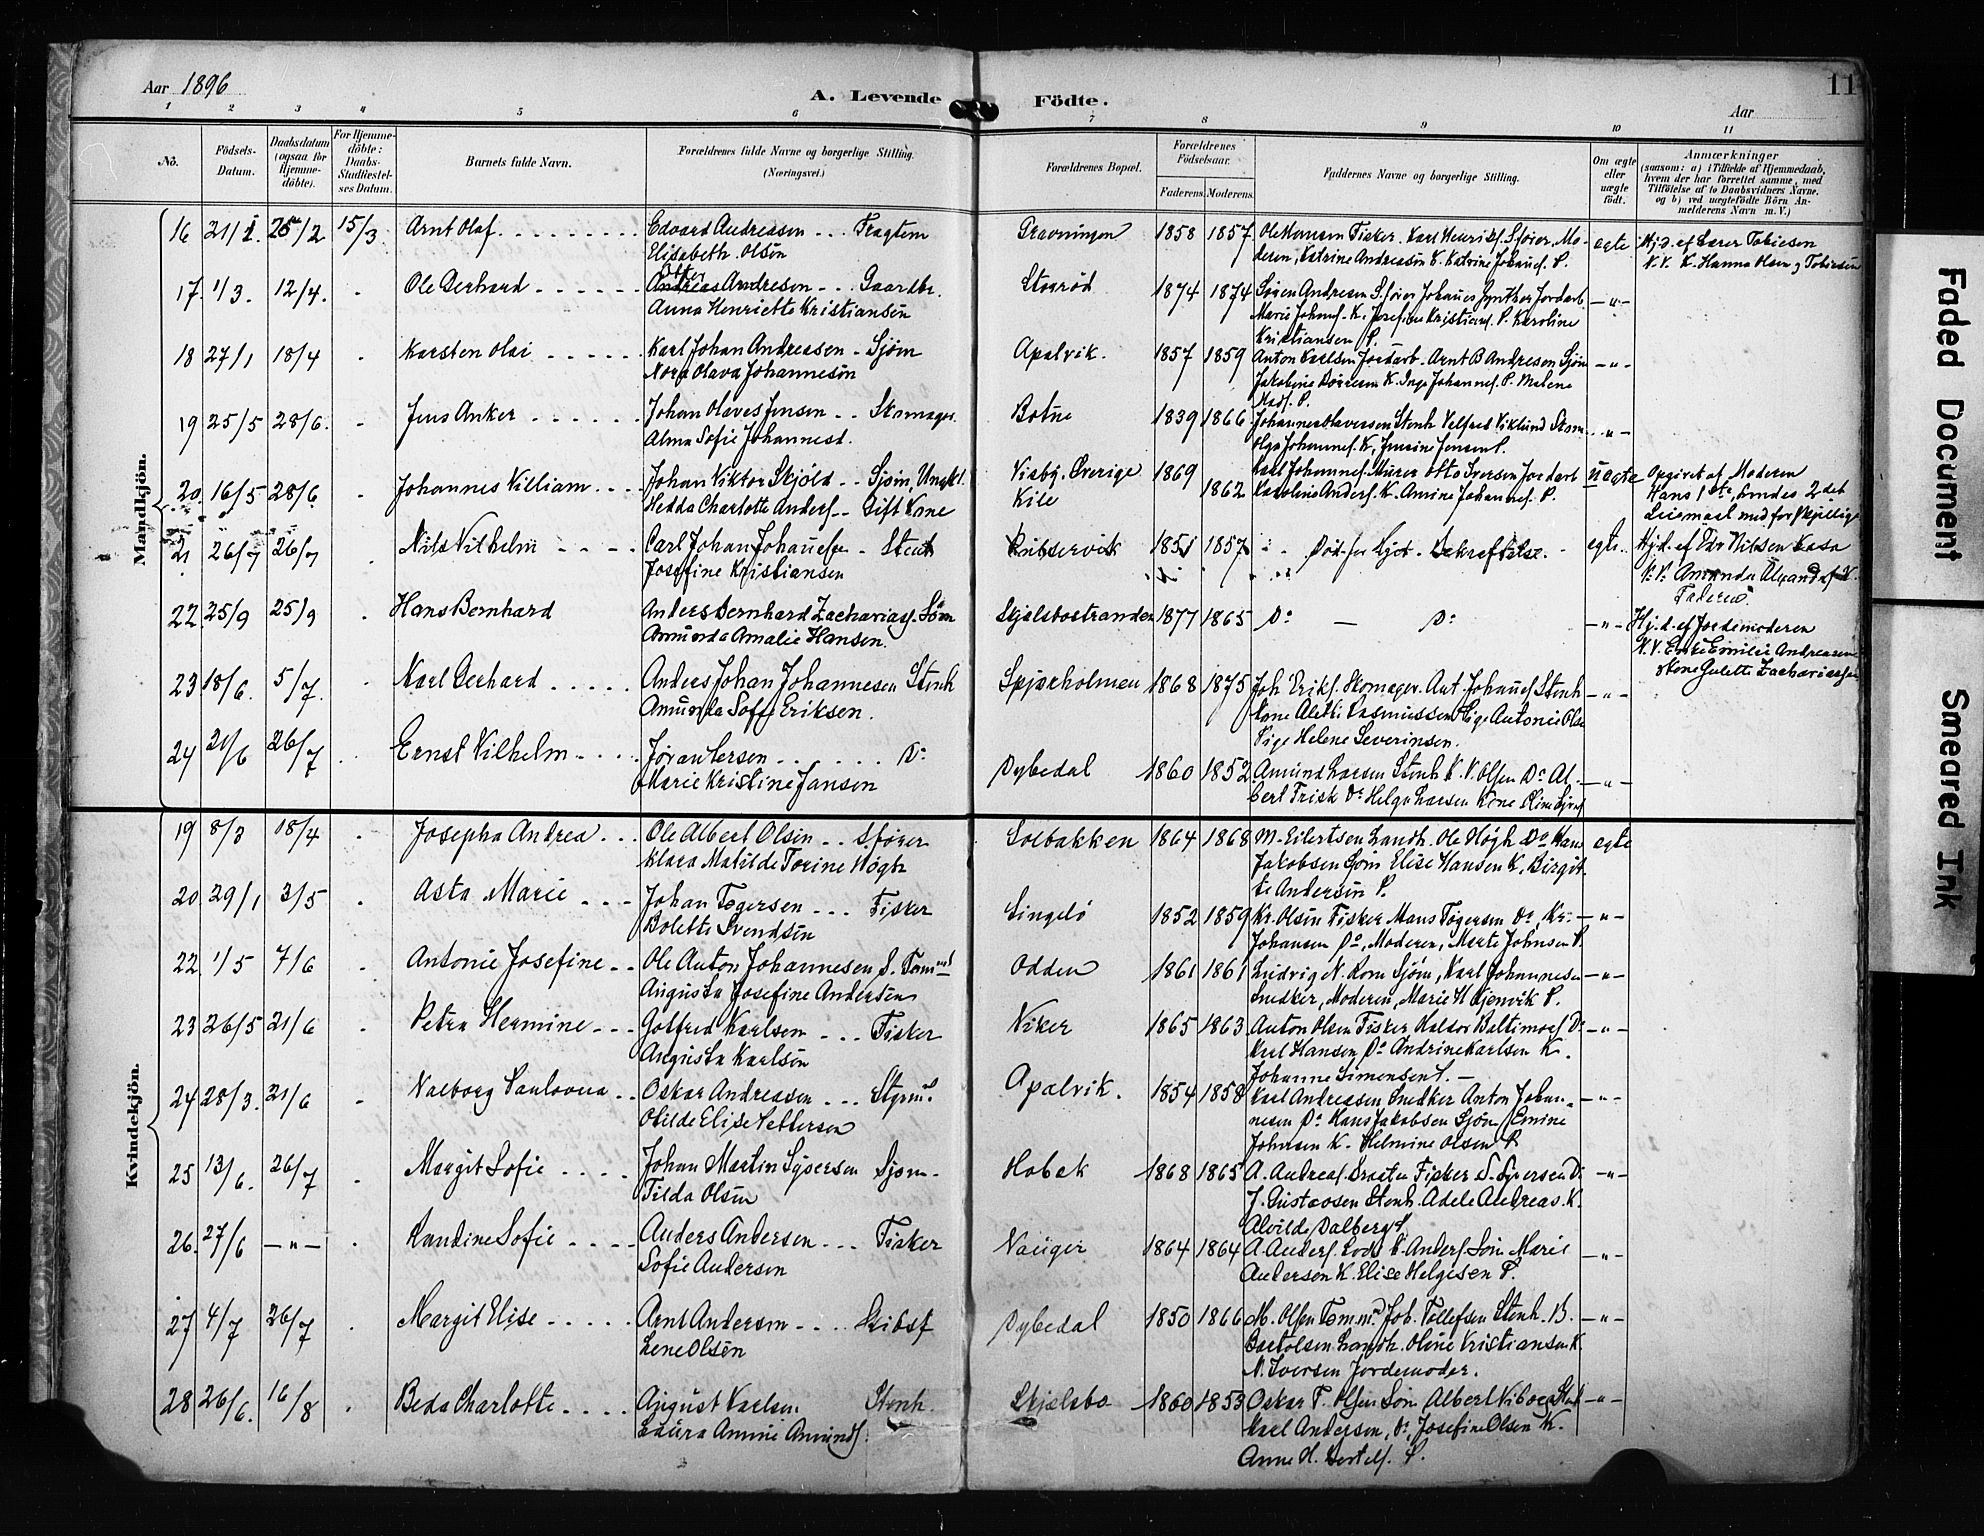 Aar 1896
A. Levende Födte.
Aar
11
1 2 3 4 5 6 7 8 9 10 11
No.
Födsels-Datum.
Daabsdatum (ogsaa for Hjemme-döbte).
For Hjemme-döbte: Daabs-Stadfæstel-ses Datum.
Barnets fulde Navn.
Forældrenes fulde Navne og borgerlige Stilling. (Næringsvei.)
Forældrenes Bopæl.
Forældrenes Födselsaar.
Faderens. Moderens.
Faddernes Navne og borgerlige Stilling.
Om ægte eller uægte födt.
Anmærkninger
(saasom: a) i Tilfælde af Hjemmedaab, hvem der har forrettet samme, med Tilföielse af to Daabsvidners Navne, og b) ved uægtefödte Börn An-melderens Navn m. V.)
Mandkjön.
16 21/1. 25/2 15/3 Arnt Olaf Edvard Andreassen Elisabeth Olsen 1858 1857 Ole Hermann Fisker. Karl Henriks. Sfører, Mo-deren, Katrine Andreasen K. Katrine Johans. P. egte Hj.d. af Lærer Tobiesen V.V. K. Hanna Olsen og Tobiesen
17. 1/3. 12/4. Ole Gerhard Andreas Andresen Gaardbr. Anna Henriette Kristiansen Storød 1874 1874 Søren Andresen Sfører Johanes Jordarb. Marie Johns. K. Josefine Kristians. P. Karoline Kristiansen P. -"-
18 27/1 18/4 Karsten Olai Karl Johan Andreassen Sjøm Nora Olava Johannesen Apalvik. 1857 1859 Anton Karlsen Jordarb. Arnt B Andresen Sjøm Jakobine K. Inga Johannes. P. Malene Mads. P. -"-
19 25/5 28/6. Jens Anker Johan Olaves Jensen Skomager. Alma Sofie Johannesd. Botne 1839 1866 Johannes Olavessen Stenh Velfred Viklund Skom Olga Johannes. K, Jensine Jensen P. -"-
20. 16/5 28/6 Johannes Villiam Johan Viktor Skjöld Sjøm Ungkl. Hedda Charlotte Anders. Gift Kone Visby, Sverige Kile 1869 1862 Karl Johannes. Murer Otto Iversen Jordarb Karoline Anders. K. Amine Johannes. P. uegte Opgivet af Moderen Hans 1ste, hendes 2det Leiemaal med forskjellige
21 26/7 26/7 Nils Vilhelm Carl Johan Johanesen Stenh Josefine Kristiansen 1851 1857 Død før Hjd. Bekræftelse. egte Hj.d. af Edv Nilsen Kasa V.V. Amanda K. Faderen.
22. 25/9 25/9 Hans Bernhard Anders Bernhard Zachariass. Søm Amunda Amalie Hansen. Skjelsbostranden 1877 1865 Do — Do -"- Hj.d. af Jordemoderen V.V. Enke Emilie Andreasen Kone Julette Zachariassen
23 18/6. 5/7. Karl Gerhard Anders Johan Johannesen Stenh Amunda Soffi Eriksen. Spjærholmen 1868 1875 Joh. Eriks. Skomager. Ant. Johanes. Stenh Kone Alette Rasmussen Pige Antonie Olse Pige Helene Severinsen. -"-
24 21/6 26/7 Ernst Vilhelm Jøran Larsen Do Marie Kristine Jansen Dybedal 1860 1852 Amund Larsen Stenh K. V. Olsen Do Al-bert Frisk Do Helga Larsen Kone -"-
Kvindekjön.
19 8/3 18/4 Josepha Andrea Ole Albert Olsen Sfører Klara Matilde Torine Högh Solbakken 1864 1868 M. Eilertsen Landh. Ole Högh Do Hans Jakobsen Søm Elise Hansen K, Birgit-te Andersen P. egte
20. 29/1 3/5 Asta Marie Johan Tøgersen Fisker Bolette Svendsen Singelö 1852 1859 Kr. Olsen Fisker Hans Tøgersen Do, Kr. Johansen Do, Moderen, Marte Johnsen P. -"-
22 1/5 7/6 Antonie Josefine Ole Anton Johannesen S. Tømmd Augusta Josefine Andersen Odden 1861 1861 Ludvig N. Rom Sjøm, Karl Johannesen Snedker, Moderen, Marie H Kjenvik P. -"-
23 26/5 21/6 Petra Hermine Gotfred Karlsen Fisker Augusta Karlsen Viker 1865 1863 Anton Olsen Fisker Haldor Baltimoes. Do Karl Hansen Do Andrine Karlsen K. Johanne Simensen P. -"-
24 28/3. 21/6 Valborg Oskar Andreasen Styrm. Otilde Elise Pettersen Apalvik. 1854 1858 Karl Andreassen Snedker Anton Johan-nesen Do Hans Jakobsen Sjøm Emine Johnsen K. Helmine Olsen P. -"-
25 13/6. 26/7 Margit Sofie Johan Martin Syversen Sjøm. Tilda Olsen Habæk 1868 1865 A. Andreas. Fisker S. Syversen Do J. Gustavsen Stenh. Adele Andreas. K. Alvilde Dalberg P. -"-
26. 27/6 -"- Randine Sofie Anders Andersen Fisker Sofie Andersen Nauger 1864 1864 A. Anders. Lods Anders. Søm Marie Andersen K. Elise Helgesen P. -"-
27 4/7 26/7 Margit Elise Arnt Andersen Skibsf Lene Olsen Dybedal 1850 1866 M. Olsen Tømm. Joh. Tollefsen Stenh. B. Bartolsen Landh. Oline Kristiansen K. N. Iversen Jordemoder. -"-
28 26/6. 16/8 Beda Charlotte August Karlsen Stenh. Laura Amine Amunds. Skjelsbo 1860 1853 Oskar F. Olsen Søm Albert Viborg Stenh Karl Andersen, Do, Josefine Olsen K. Anne H. Bertels. P. -"-
Faded Document
Smeared Ink